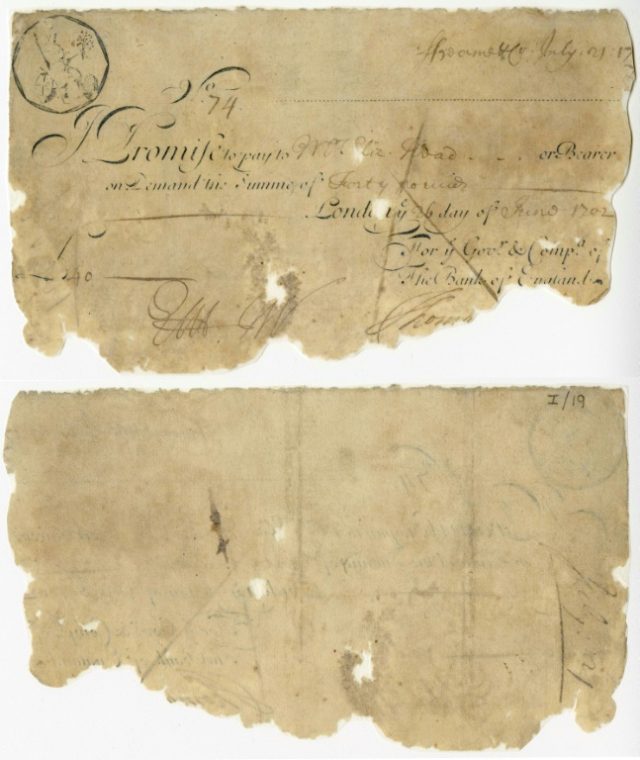 July. 21. 17
No. 74
I Promise to pay to Mr. Eliz. Head . . . or Bearer
on Demand the Summe of Forty pounds
London ye 26 day of June 1702
For ye Govr. & Compa. of
The Bank of England.
£ 40
Thomas
I/19
July 21